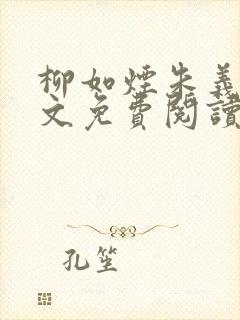 柳如煙朱義
文免費閱讀
孔笙